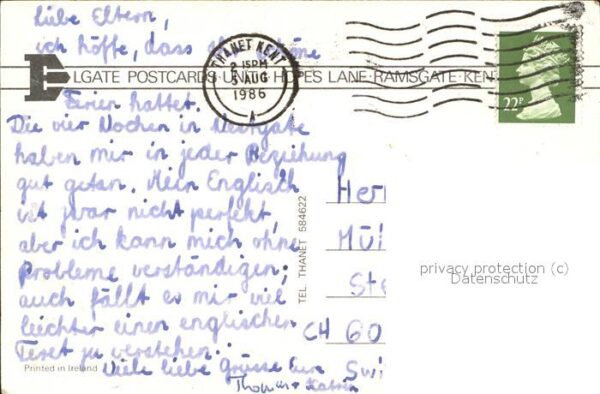 Liebe Eltern,
ich hoffe, dass schöne
THANET KENT
2 15PM
AUG
1986
A
22P
E ELGATE POSTCARDS HOPES LANE RAMSGATE KENT
Ferien hattet.
Die vier Wochen in Westgate
haben mir in jeder Beziehung
gut getan. Mein Englisch
ist zwar nicht perfekt,
aber ich kann mich ohne
Probleme verständigen;
auch fällt es mir viel
leichter einen englischen
Text zu verstehen.
Viele liebe Grüsse Eure
Thomas + Katrin
TEL. THANET 584622
Her
Mül
Ste
CH 60
Swi
privacy protection (c)
Datenschutz
Printed in Ireland